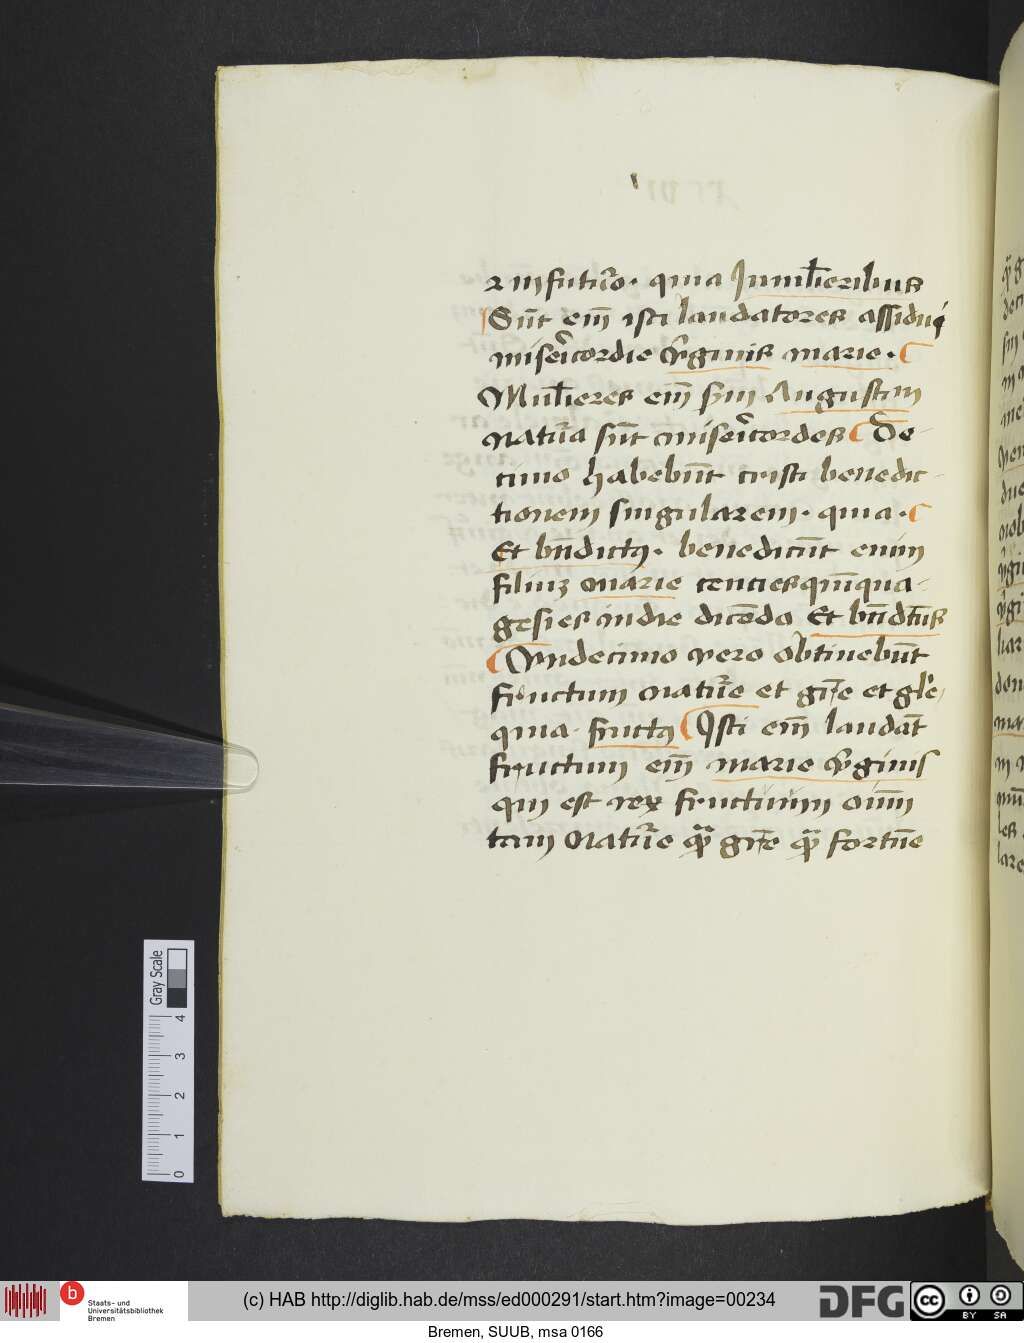 ⁊ in futuro. quia In mulieribus
Sūt em̄ isti laudatores assidui
misericordie v̓ginis marie.
Mulieres em̄ s̄m Augustin
Natura sūt misericordes De-
cimo habebūt tristi benedic-
tionem singularem. quia.
Et bn̄dictꝰ. benedicūt enim
filiuꝫ marie centiesqm̄qua-
gesies indie dicēdo Et bn̄dc̄us
Vndecimo vero obtinebūt
fructum nature et gr̄e et gl'e
quia fructꝰ Isti em̄ laudāt
fructum em̄ marie v̓ginis
qui est rex fructuum om̄i
tam Nature qua gr̄e qua fortūe
Gray Scale
4
3
2
1
0
b
Staats- und
Universitätsbibliothek
Bremen
(c) HAB http://diglib.hab.de/mss/ed000291/start.htm?image=00234
DFG
cc
BY
SA
Bremen, SUUB, msa 0166